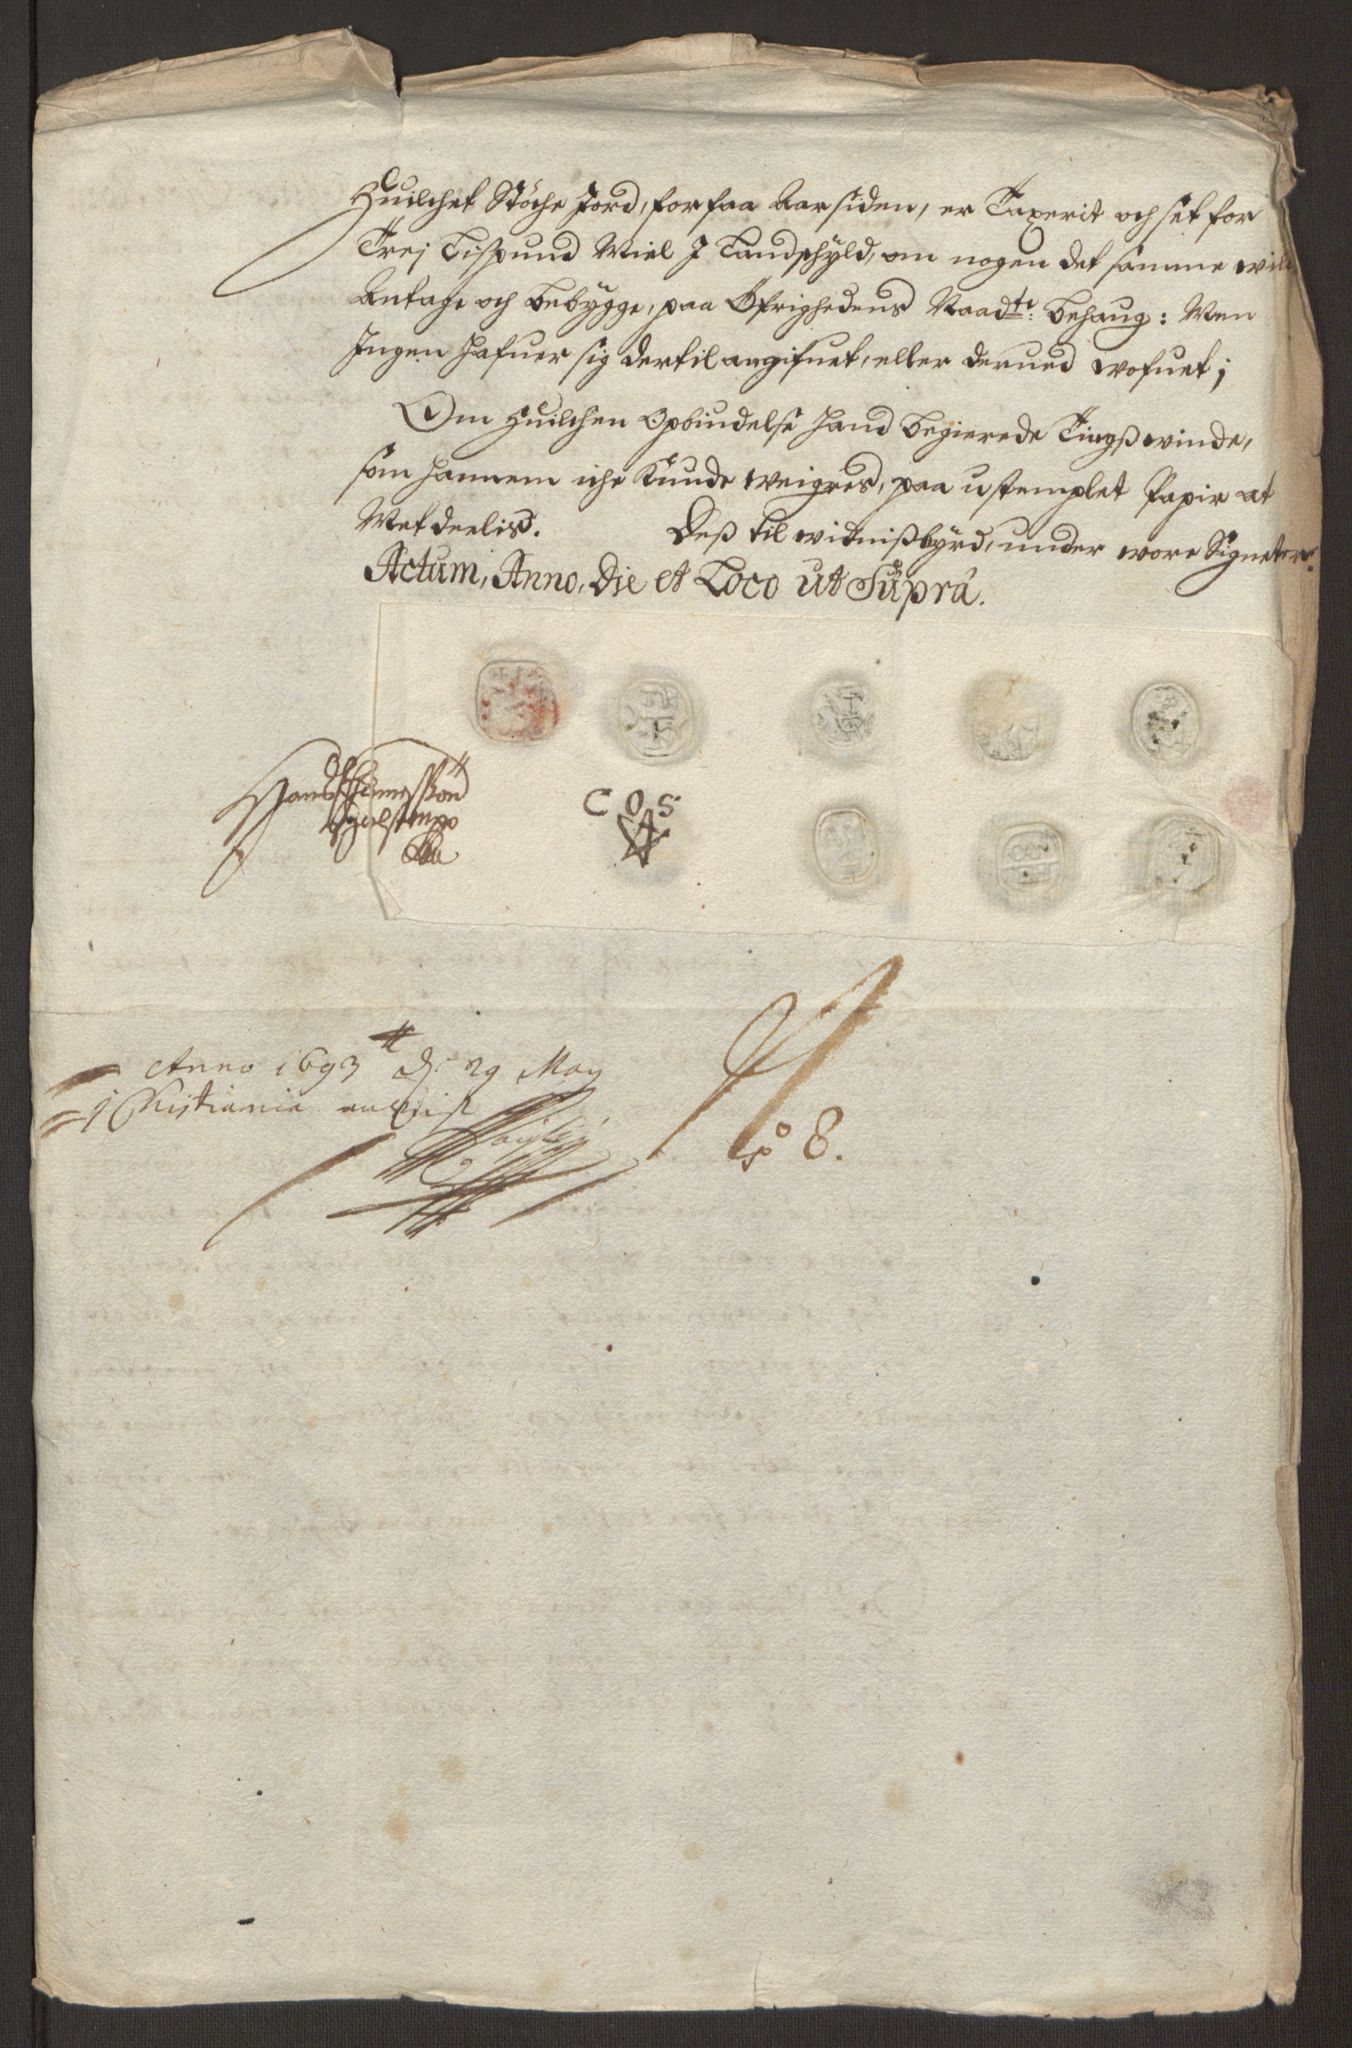 Huilchet Støche Jord, for faa Aar siden, er Taxerit och set for
Trej Lispund Miel J Landschyld, om nogen det samme wille
Antage och bebygge, paa Øfrighedens Naad:ste behaug: Men
Jngen hafuer sig dertil angifuet, eller derued wofuet;
Om huilchen Opbiudelse hand begierede Tingßwinde,
som hannem iche kunde weigres, paa ustemplet Papir at
Metdeelis. Deß til widnißbyrd, under wore Signeter.
Actum, Anno, Die et Loco ut Suprà.
COS
Anno 1693 d: 29 May
J Christiania
No 8.